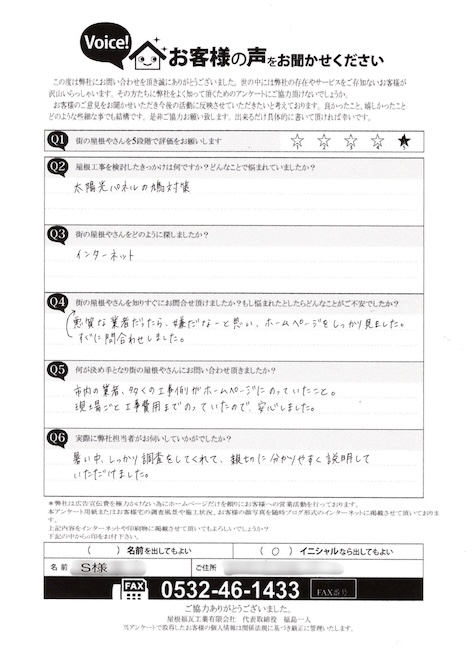 Voice! お客様の声をお聞かせください
この度は弊社にお問い合わせを頂き誠にありがとうございました。世の中には弊社の存在やサービスをご存知ないお客様が
沢山いらっしゃいます。その方たちに弊社をよく知って頂くためのアンケートにご協力頂けないでしょうか。
お客様のご意見をお聞かせいただき今後の活動に反映させていただきたいと考えております。良かったこと、嬉しかったこと
どのような些細な事でも結構です。是非ご協力お願い致します。出来るだけ具体的に書いて頂ければ幸いです。
Q1 街の屋根やさんを5段階で評価をお願いします
1 2 3 4 5
Q2 屋根工事を検討したきっかけは何ですか？どんなことで悩まれていましたか？
太陽光パネルの鳩対策
Q3 街の屋根やさんをどのように探しましたか？
インターネット
Q4 街の屋根やさんを知りすぐにお問合せ頂けましたか？もし悩まれたとしたらどんなことがご不安でしたか？
悪質な業者だったら、嫌だなーと思い、ホームページをしっかり見ました。
すぐに問合わせしました。
Q5 何が決め手となり街の屋根やさんにお問い合わせ頂きましたか？
市内の業者、多くの工事例がホームページにのっていたこと。
現場ごと工事費用までのっていたので、安心しました。
Q6 実際に弊社担当者がお伺いしていかがでしたか？
暑い中、しっかり調査をしてくれて、親切に分かりやすく説明して
いただけました。
＊弊社は広告宣伝費を極力かけない為にホームページだけを頼りにお客様への営業活動を行っております。
本アンケート用紙またはお客様宅の調査風景や施工状況、お客様の御写真を随時ブログ形式のインターネットに掲載させて頂いておりま
す。
上記内容をインターネットや印刷物に掲載させて頂いてもよろしいでしょうか？
下記の中から○印をお付け下さい。
（　）名前を出してもよい （ ○ ）イニシャルなら出してもよい
名前 S様 ご住所
FAX 0532-46-1433 FAX番号
ご協力ありがとうございました。
屋根福瓦工業有限会社 代表取締役 福島一人
当アンケートで取得したお客様の個人情報は関係法規に基づき厳正に管理いたします。